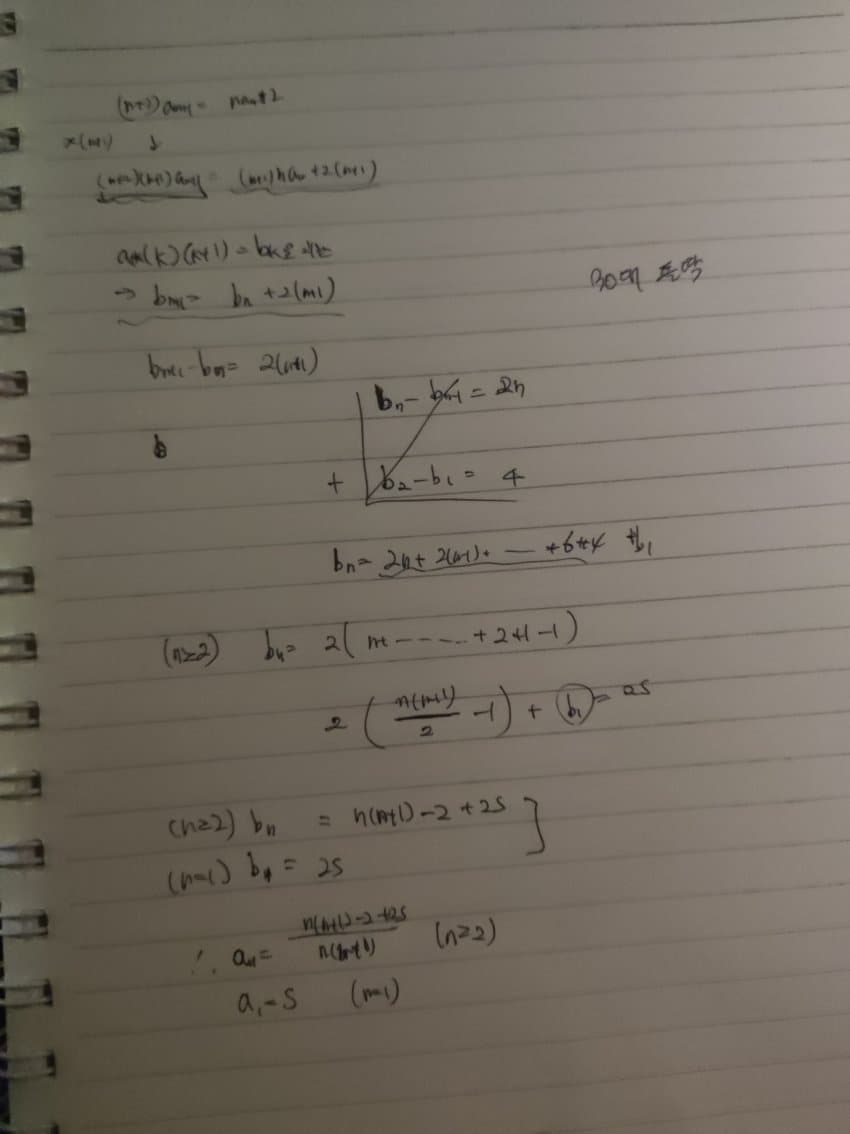 (n+2)aₙ₊₁ = naₙ+2
×(n+1) ↓
(n+2)(n+1)aₙ₊₁ = (n+1)naₙ+2(n+1)
(k)(k+1) = bₖ로
→ bₙ₊₁ = bₙ +2(n+1)
bₙ₊₁-bₙ = 2(n+1)
bₙ - bₙ₋₁ = 2n
b
+ b₂-b₁ = 4
bₙ = 2n+ 2(n-1)+ ― +6+4 +b₁
(n≥2) bₙ= 2( n+ ----- +2+1-1)
2 ( n(n+1)/2 -1) + b₁ = 2S
(n≥2) bₙ = n(n+1)-2+2S
(n=1) b₁ = 2S
∴ aₙ = n(n+1)-2+2S / n(n+1) (n≥2)
a₁=S (n=1)